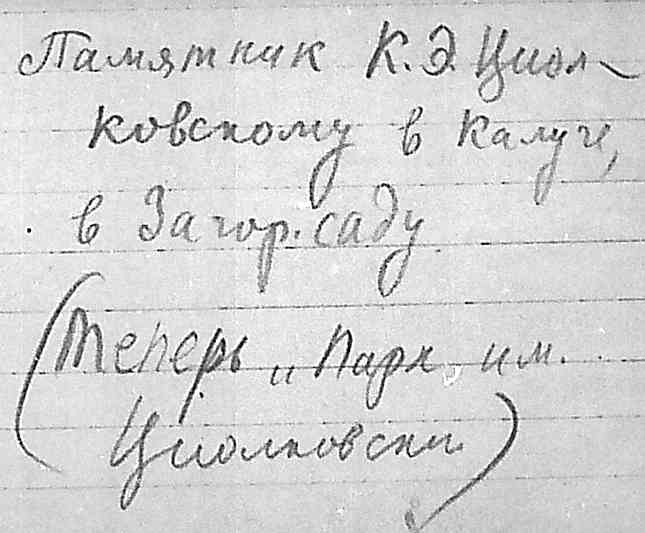 Памятник К.Э. Циол-
ковскому в Калуге,
в Загор. саду
(Теперь „Парк им.
Циолковски.)